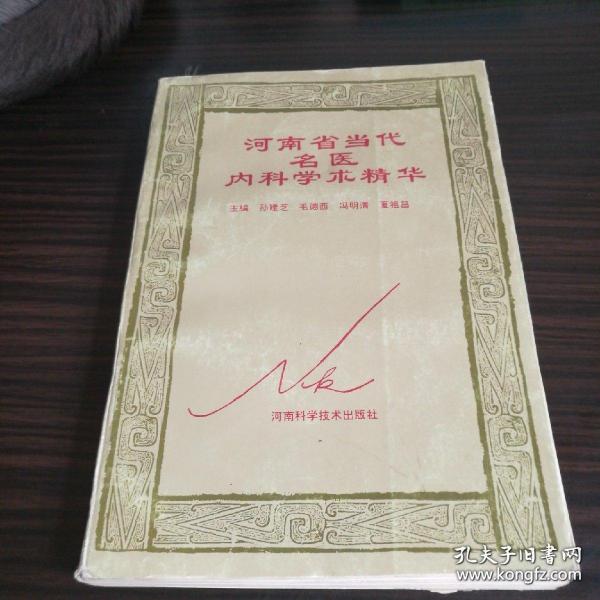 河南省当代
名医
内科学术精华
主编 孙建芝 毛德西 冯明清 夏祖昌
Nk
河南科学技术出版社
孔夫子旧书网
www.kongfz.com